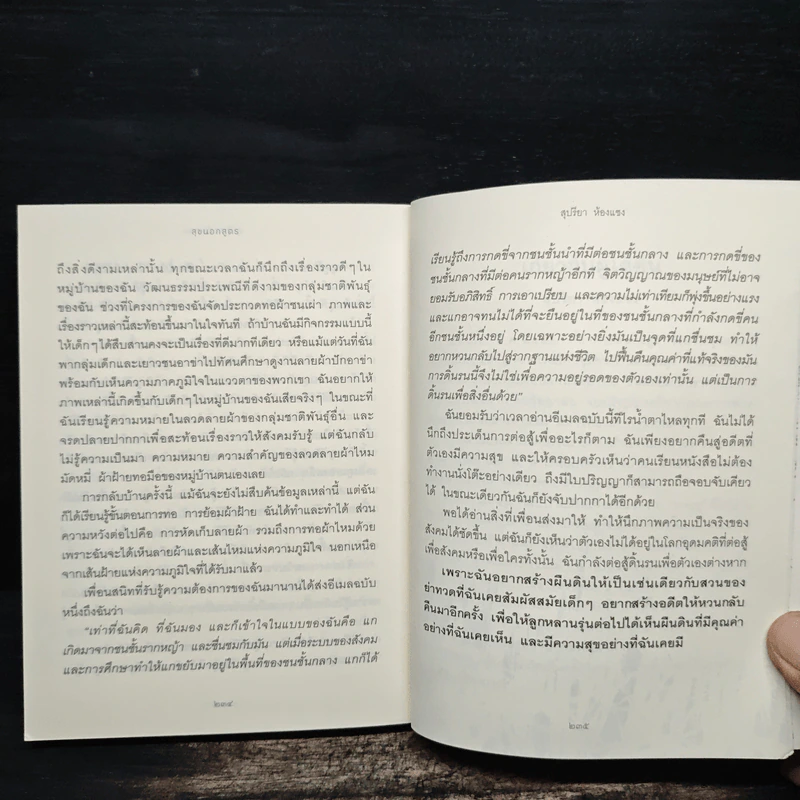 สุขนอกสูตร
ถึงสิ่งดีงามเหล่านั้น ทุกขณะเวลาฉันก็นึกถึงเรื่องราวดีๆ ใน
หมู่บ้านของฉัน วัฒนธรรมประเพณีที่ดีงามของกลุ่มชาติพันธุ์
ของฉัน ช่วงที่โครงการของฉันจัดประกวดทอผ้าชนเผ่า ภาพและ
เรื่องราวเหล่านี้สะท้อนขึ้นมาในใจทันที ถ้าบ้านฉันมีกิจกรรมแบบนี้
ให้เด็กๆ ได้สืบสานคงจะเป็นเรื่องที่ดีมากทีเดียว หรือแม้แต่วันที่ฉัน
พากลุ่มเด็กและเยาวชนอาข่าไปทัศนศึกษาดูงานลายผ้าปักอาข่า
พร้อมกับเห็นความภาคภูมิใจในแววตาของพวกเขา ฉันอยากให้
ภาพเหล่านี้เกิดขึ้นกับเด็กๆ ในหมู่บ้านของฉันเสียจริงๆ ในขณะที่
ฉันเรียนรู้ความหมายในลวดลายผ้าของกลุ่มชาติพันธุ์อื่น และ
จรดปลายปากกาเพื่อสะท้อนเรื่องราวให้สังคมรับรู้ แต่ฉันกลับ
ไม่รู้ความเป็นมา ความหมาย ความสำคัญของลวดลายผ้าไหม
มัดหมี่ ผ้าฝ้ายทอมือของหมู่บ้านตนเองเลย
การกลับบ้านครั้งนี้ แม้ฉันจะยังไม่สืบค้นข้อมูลเหล่านี้ แต่ฉัน
ก็ได้เรียนรู้ขั้นตอนการทอ การย้อมผ้าฝ้าย ฉันได้ทำและทำได้ ส่วน
ความหวังต่อไปคือ การหัดเก็บลายผ้า รวมถึงการทอผ้าไหมด้วย
เพราะฉันจะได้เห็นลายผ้าและเส้นไหมแห่งความภูมิใจ นอกเหนือ
จากเส้นฝ้ายแห่งความภูมิใจที่ได้รับมาแล้ว
เพื่อนสนิทที่รับรู้ความต้องการของฉันมานานได้ส่งอีเมลฉบับ
หนึ่งถึงฉันว่า
“เท่าที่ฉันคิด ที่ฉันมอง และก็เข้าใจในแบบของฉันคือ แก
เกิดมาจากชนชั้นรากหญ้า และชื่นชมกับมัน แต่เมื่อระบบของสังคม
และการศึกษาทำให้แกขยับมาอยู่ในพื้นที่ของชนชั้นกลาง แกก็ได้
๒๓๔
สุปรียา ห้องแซง
เรียนรู้ถึงการกดขี่จากชนชั้นนำที่มีต่อชนชั้นกลาง และการกดขี่ของ
ชนชั้นกลางที่มีต่อคนรากหญ้าอีกที จิตวิญญาณของมนุษย์ที่ไม่อาจ
ยอมรับอภิสิทธิ์ การเอาเปรียบ และความไม่เท่าเทียมก็พุ่งขึ้นอย่างแรง
และแกอาจทนไม่ได้ที่จะยืนอยู่ในที่ของชนชั้นกลางที่กำลังกดขี่คน
อีกชนชั้นหนึ่งอยู่ โดยเฉพาะอย่างยิ่งมันเป็นจุดที่แกชื่นชม ทำให้
อยากหวนกลับไปสู่รากฐานแห่งชีวิต ไปฟื้นคืนคุณค่าที่แท้จริงของมัน
การดิ้นรนนี้จึงไม่ใช่เพื่อความอยู่รอดของตัวเองเท่านั้น แต่เป็นการ
ดิ้นรนเพื่อสิ่งอื่นด้วย”
ฉันยอมรับว่าเวลาอ่านอีเมลฉบับนี้ทีไรน้ำตาไหลทุกที ฉันไม่ได้
นึกถึงประเด็นการต่อสู้เพื่ออะไรก็ตาม ฉันเพียงอยากคืนสู่อดีตที่
ตัวเองมีความสุข และให้ครอบครัวเห็นว่าคนเรียนหนังสือไม่ต้อง
ทำงานนั่งโต๊ะอย่างเดียว ถึงมีใบปริญญาก็สามารถถือจอบจับเคียว
ได้ ในขณะเดียวกันฉันก็ยังจับปากกาได้อีกด้วย
พอได้อ่านสิ่งที่เพื่อนส่งมาให้ ทำให้นึกภาพความเป็นจริงของ
สังคมได้ชัดขึ้น แต่ฉันก็ยังเห็นว่าตัวเองไม่ได้อยู่ในโลกอุดมคติที่ต่อสู้
เพื่อสังคมหรือเพื่อใครทั้งนั้น ฉันกำลังต่อสู้ดิ้นรนเพื่อตัวเองต่างหาก
เพราะฉันอยากสร้างผืนดินให้เป็นเช่นเดียวกับสวนของ
ย่าทวดที่ฉันเคยสัมผัสสมัยเด็กๆ อยากสร้างอดีตให้หวนกลับ
คืนมาอีกครั้ง เพื่อให้ลูกหลานรุ่นต่อไปได้เห็นผืนดินที่มีคุณค่า
อย่างที่ฉันเคยเห็น และมีความสุขอย่างที่ฉันเคยมี
๒๓๕